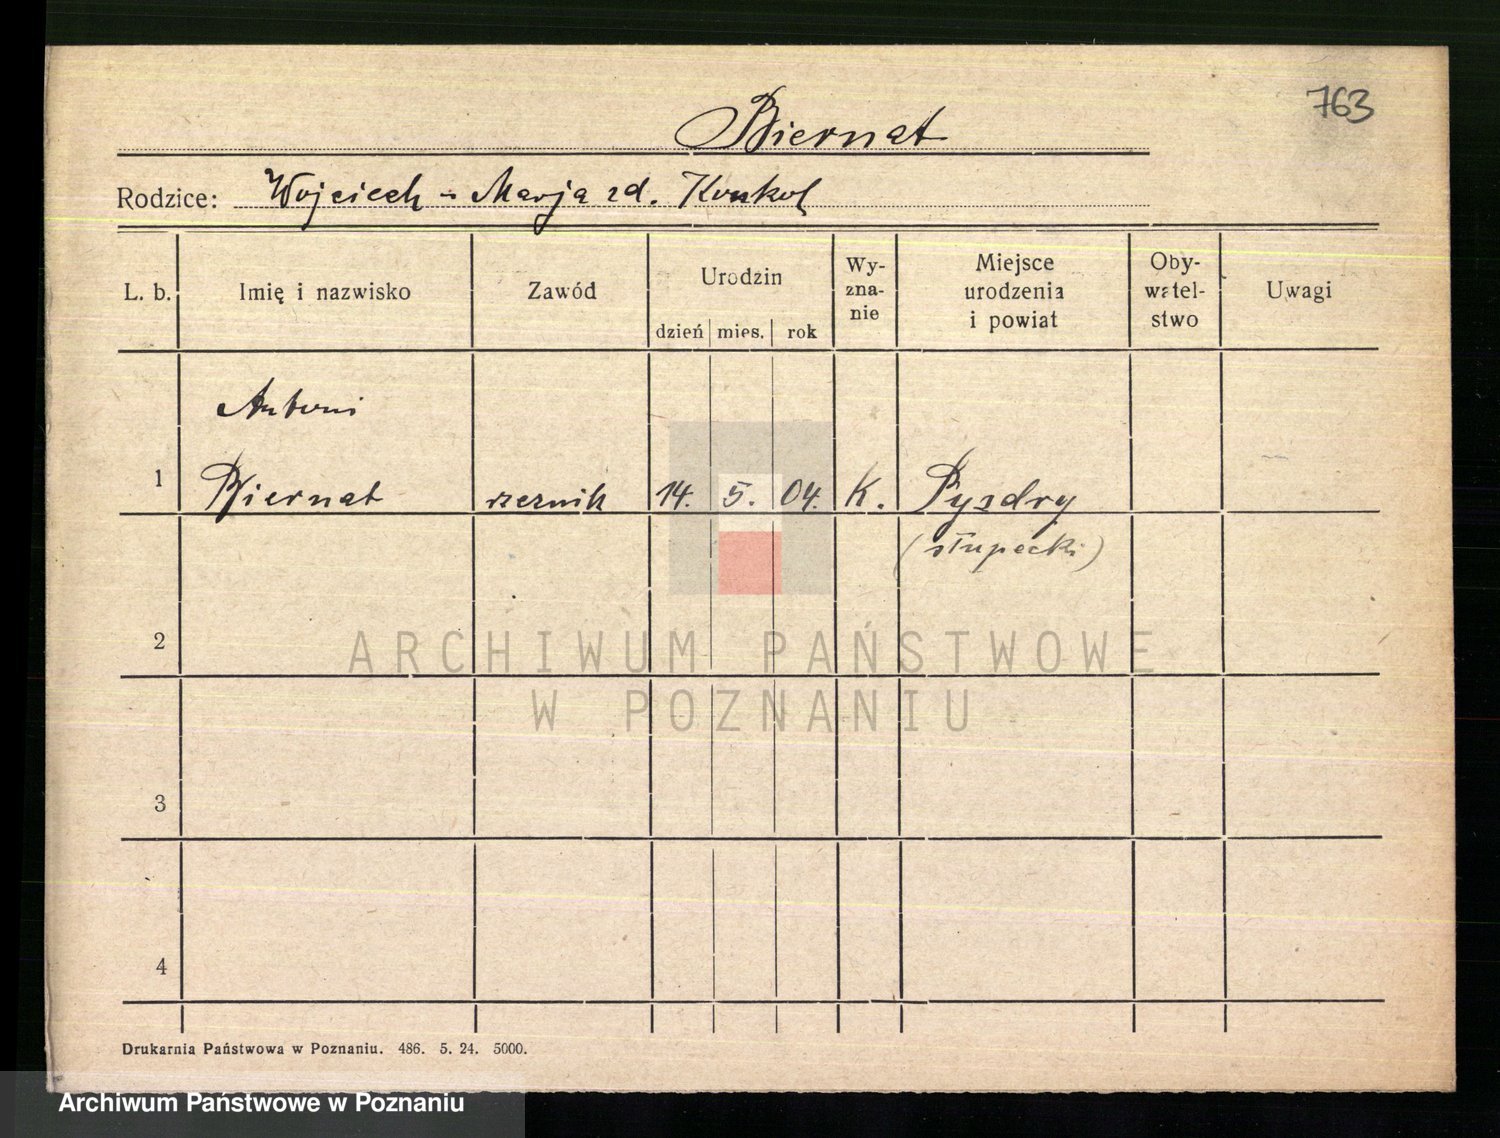 763
Biernat
Rodzice: Wojciech - Marja zd. Konkol
L. b. Imię i nazwisko Zawód Urodzin Wy- zna- nie Miejsce urodzenia i powiat Oby- watel- stwo Uwagi
dzień mies. rok
Antoni
1 Biernat rzeźnik 14. 5. 04. K. Pyzdry
(słupecki)
2
ARCHIWUM PAŃSTWOWE
W POZNANIU
3
4
Drukarnia Państwowa w Poznaniu. 486. 5. 24. 5000.
Archiwum Państwowe w Poznaniu